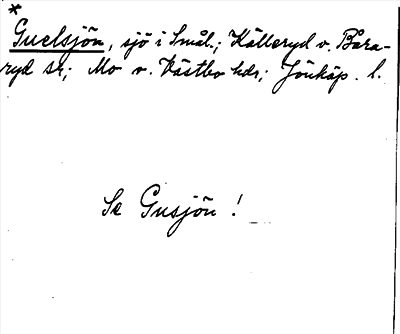 *
Guelsjön, sjö i Smål.; Kålleryd o. Bara-
ryd sr; Mo o. Västbo hdr; Jönköp. l.
Se Gusjön!